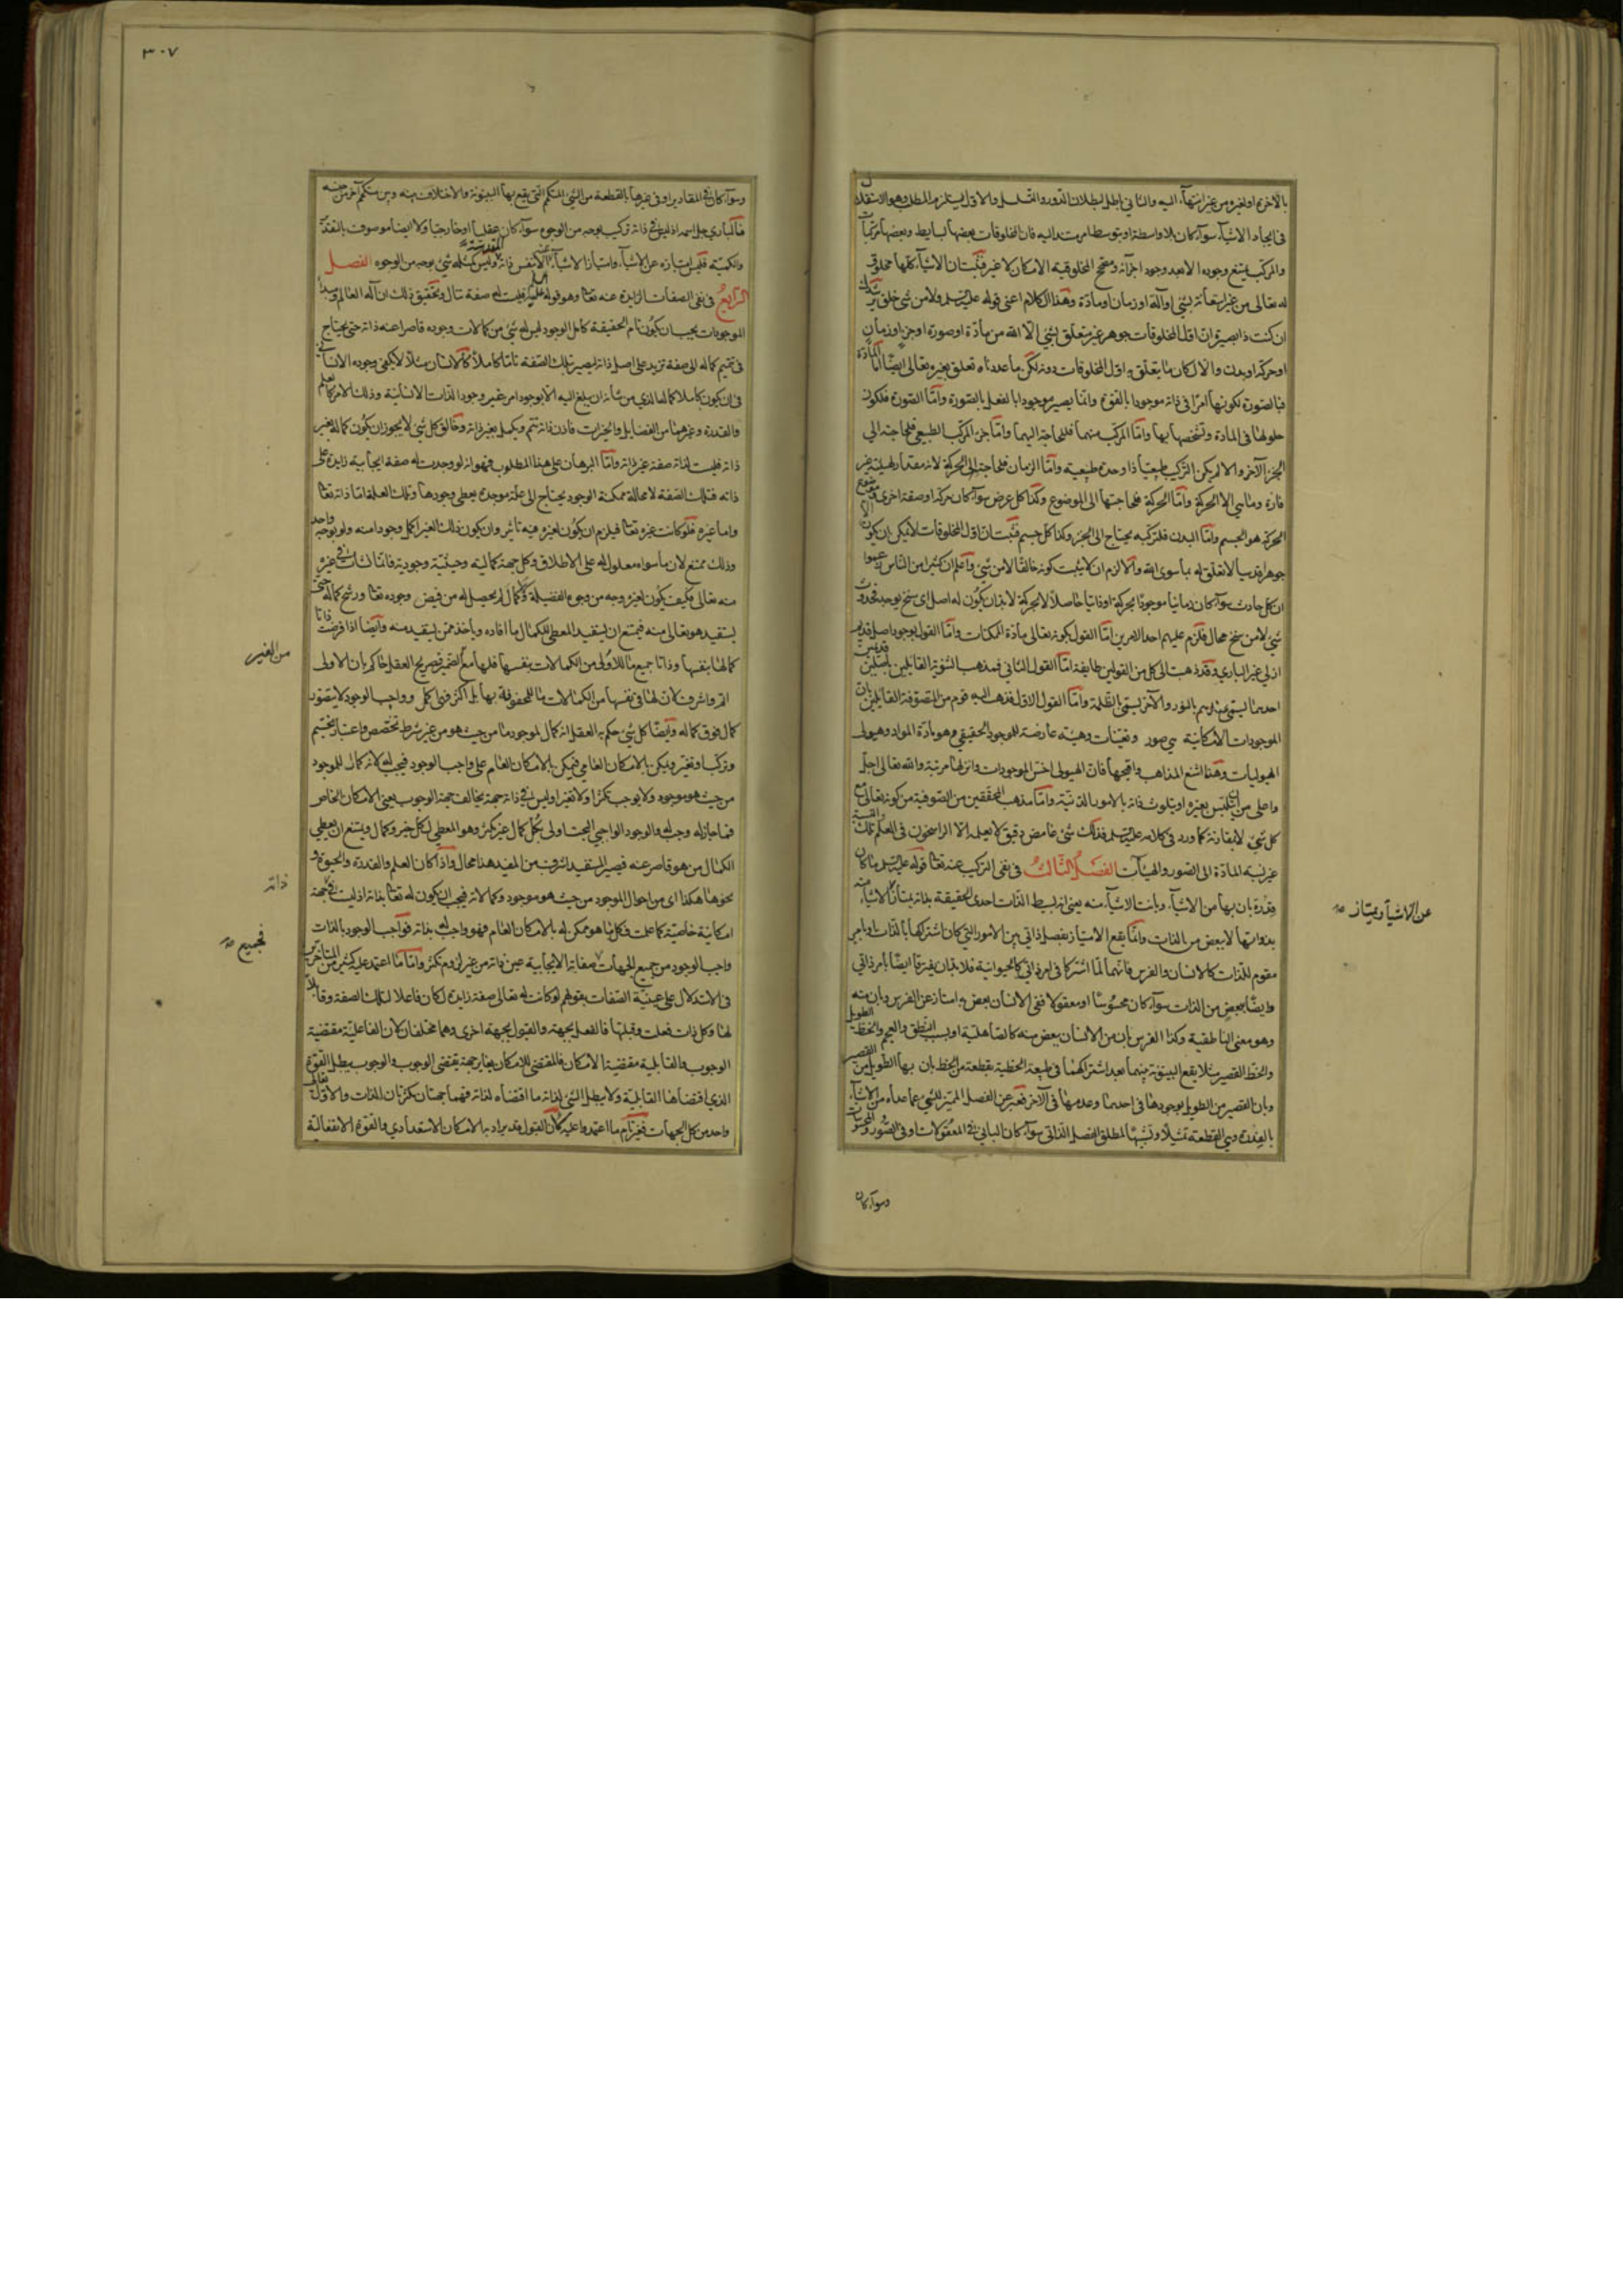 بالآخرة او لغيره من غير انتهاء اليه والثاني باطل لبطلان الدور والتسلسل والاول يستلزم المطلب وهو الاستقلال
في ايجاد الاشياء سواء كان بلا واسطة او بتوسط امر مستند اليه فان المخلوقات بعضها بسايط وبعضها مركبات
والمركب يمتنع وجوده الا بعد وجود اجزائه ومصحح المخلوقية الامكان لا غير فثبت ان الاشياء كلها مخلوقة
له تعالى من غير استعانة بشئ او آلة او زمان او مادة وهذا الكلام اعنى قوله عليه السلم ولا من شئ خلق
ان كنت ذا بصيرة ان اول المخلوقات جوهر غير متعلق بشئ الا الله من مادة او صورة او جزء او زمان
او حركة او بدن والا لكان ما يتعلق به اول المخلوقات دونه لكن ما عداه تعلق بغيره تعالى ايضا اما المادة
فبالصورة لكونها امرا في ذاته موجودا بالقوة وانما يصير موجودا بالفعل بالصورة واما الصورة فلكون
حلولها في المادة وتشخصها بها واما المركب منهما فلحاجته اليهما واما جزء المركب الطبيعي فلحاجته الى
الجزء الآخر والا لم يكن التركيب طبيعيا ذا وحدة طبيعية واما الزمان فلحاجته الى الحركة لانه مقدار لهيئة غير
قارة وما هي الا الحركة واما الحركة فلحاجتها الى الموضوع وكذا كل عرض سواء كان حركة او صفة اخرى وموضوع
الحركة هو الجسم واما البدن فلتركبه يحتاج الى الجزء وكذا كل جسم فثبت ان اول المخلوقات لا بد ان يكون
جوهرا قدسيا لا تعلق له بما سوى الله والا لزم ان لا يثبت كونه خالقا لا من شئ واعلم ان كثيرا من الناس زعموا
ان كل حادث سواء كان زمانيا موجودا بحركة او ذاتيا حاصلا لا بحركة لا بد ان يكون له اصل اى سنخ يوجد فحدوث
شئ لا من سنخ محال فلزم عليهم احد الامرين اما القول بكونه تعالى مادة الممكنات واما القول بوجود اصل قديم
ازلي غير الباري وقد ذهبت الى كل من القولين طايفة اما القول الثاني فمذهب الثنوية القايلين باصلين قديمين
احدهما يسمى عندهم بالنور والآخر يسمى بالظلمة واما القول الاول فذهب اليه قوم من المتصوفة القايلين بان
الموجودات الامكانية هي صور وتعينات وهيئة عارضة للوجود الحقيقي وهو مادة المواد وهيولى
الهيوليات وهذا اشنع المذاهب واقبحها فان الهيولى اخس الموجودات وانزلها مرتبة والله تعالى اجل
واعلى من ان يتلبس بغيره او يتلوث ذاته بالامور الدنية واما مذهب المحققين من الصوفية من كونه تعالى مع
كل شئ لا بمقارنة كما ورد في كلامه عليه السلم فذلك شئ غامض دقيق لا يعلمه الا الراسخون في العلم والنسبة تلك
غير نسبة المادة الى الصور والهيئات الفصل الثالث في نفى التركيب عنه تعالى قوله عليه السلم ما كان
قدرة بان بها من الاشياء وبانت الاشياء منه يعنى انه بسيط الذات احدى الحقيقة بذاته يمتاز الاشياء منه
بذواتها لا ببعض من الذات وانما يقع الامتياز بفصل ذاتي بين الامور التي كان اشتراكها بالذات او بامر
مقوم للذات كالانسان والفرس فانهما لما اشتركا في امر ذاتي كالحيوانية فلا بد ان يفترقا ايضا بامر ذاتي
وايضا ببعض من الذات سواء كان محسوسا او معقولا ففى الانسان بعض به امتاز عن الفرس وبان منه
وهو معنى الناطقية وكذا الفرس بان من الانسان ببعض منه كالصاهلية او بسلب النطق والعجم والخط الطويل
والخط القصير مثلا يقع البينونة بينهما بعد اشتراكهما في طبيعة الخطية بقطعة من الخط بان بها الطويل من القصير
وبان القصير من الطويل بوجودها في احدهما وعدمها في الآخر فعبر عن الفصل المميز للشئ عما عداه من الاشياء
بالقدرة وهي القطعة تمثيلا وتشبيها لمطلق الفصل الذاتى سواء كان الباني في المعقولات او في الصور والمحسوسات
عن الاشياء ويمتاز صح
وسواء كان
٣٠٧
وسواء كان في المقادير او في غيرها بالقطعة من الشئ المتكمم التي يقع بها البينونة والاختلاف بينه وبين متكمم آخر من جنسه
فالباري جل اسمه اذ ليس في ذاته تركيب بوجه من الوجوه سواء كان عقليا او خارجيا ولا ايضا موصوف بالتقدر
والكمية فليس امتيازه عن الاشياء وامتياز الاشياء عنه الا بنفس ذاته المقدسة وليس كمثله شئ بوجه من الوجوه الفصل
الرابع في نفى الصفات الزايدة عنه تعالى وهو قوله عليه السلم فليست له صفة تنال وتحقيق ذلك ان آله العالم ومبدأ
الموجودات يجب ان يكون تام الحقيقة كامل الوجود ليس له شئ من كمالات وجوده قاصرا عنه ذاته حتى يحتاج
في تتميم كماله الى صفة تزيد على اصل ذاته ليصير بتلك الصفة تاما كاملا كالانسان مثلا لا يكفى وجوده الانساني
في ان يكون كاملا كماله الذي من شأنه ان يبلغ اليه الا بوجود امر غير وجود الذات الانسانية وذلك الامر كالعلم
والقدرة وغيرهما من الفضايل والخيرات فاذن ذاته تتم ويكمل بغير ذاته وخالق كل شئ لا يجوز ان يكون كماله بغير
ذاته فليست لذاته صفة غير ذاته واما البرهان على هذا المطلوب فهو انه لو وجدت له صفة ايجابية زايدة على
ذاته فتلك الصفة لا محالة ممكنة الوجود يحتاج الى علة موجدة يعطى وجودها وتلك العلة اما ذاته تعالى
واما غيره فلو كانت غيره تعالى فيلزم ان يكون لغيره فيه تأثير وان يكون ذلك الغير اكمل وجودا منه ولو بوجه واحد
وذلك ممتنع لان ما سواه معلول له على الاطلاق وكل جهة كمالية وحيثية وجودية فانما نشأت في غيره
منه تعالى فكيف يكون لغيره وجه من وجوه الفضيلة وكمال لم يحصل له من فيض وجوده تعالى ورشح كماله حتى
يستفيد هو تعالى منه فيمتنع ان يستفيد المعطى للكمال ما افاده ويأخذ ممن يستفيد منه وايضا اذا فرضت ذاتا
كمالها بنفسها وذاتا جميع ما للاولى من الكمالات بنفسها فلها مع الضميمة فصريح العقل حاكم بان الاولى
اتم واشرف لان لها في نفسها من الكمالات ما للمحفوفة بها بل اكثر فهى اكمل وواجب الوجود لا يتصور
كمال فوق كماله وايضا كل شئ حكم به العقل انه كمال لموجود ما من حيث هو من غير شرط تخصص واعتبار تجسيم
وتركب وتغير ويمكن بالامكان العامي فيمكن بالامكان العام على واجب الوجود فيجب له لانه كمال للموجود
من حيث هو موجود ولا يوجب تكثرا ولا تغيرا وليس في ذاته جهة يخالف جهة الوجوب يعنى الامكان الخاص
فما جاز له وجب له والوجود الواجبي البحت اولى بكل كمال غير مكثر وهو المعطى لكل خير وكمال ويمتنع ان يعطى
الكمال من هو قاصر عنه فيصير المستفيد اشرف من المفيد هذا محال واذا كان العلم والقدرة والحيوة و
نحوها هكذا اى من احوال الموجود من حيث هو موجود وكمالاته فيجب ان يكون له تعالى بذاته اذ ليست في جهة
امكانية خاصية كما علمت فكل ما هو ممكن له بالامكان العام فهو واجب له بذاته فواجب الوجود بالذات
واجب الوجود من جميع الجهات صفاته الايجابية عين ذاته من غير لزوم تكثر واما ما اعتمد عليه كثير من المتأخرين
في الاستدلال على عينية الصفات بقولهم لو كانت له تعالى صفة زايدة لكان فاعلا لتلك الصفة وقابلا
لها وكل ذات فعلت وقبلت فالفعل بجهة والقبول بجهة اخرى وهما مختلفان لان الفاعلية مقتضية
الوجوب والقابلية مقتضية الامكان فالمقتضى للامكان يغاير جهة يقتضى الوجوب والوجوب يبطل القوة
الذي اقتضاها القابلية ولا يبطل الشئ لذاته ما اقتضاه لذاته فهما جهتان يكثران للذات والاول تعالى
واحد من كل الجهات فغير تام ما اعتمدوا عليه لان القبول قد يراد به الامكان الاستعدادي والقوة الانفعالية
من الغير
ذاته
فجميع صح